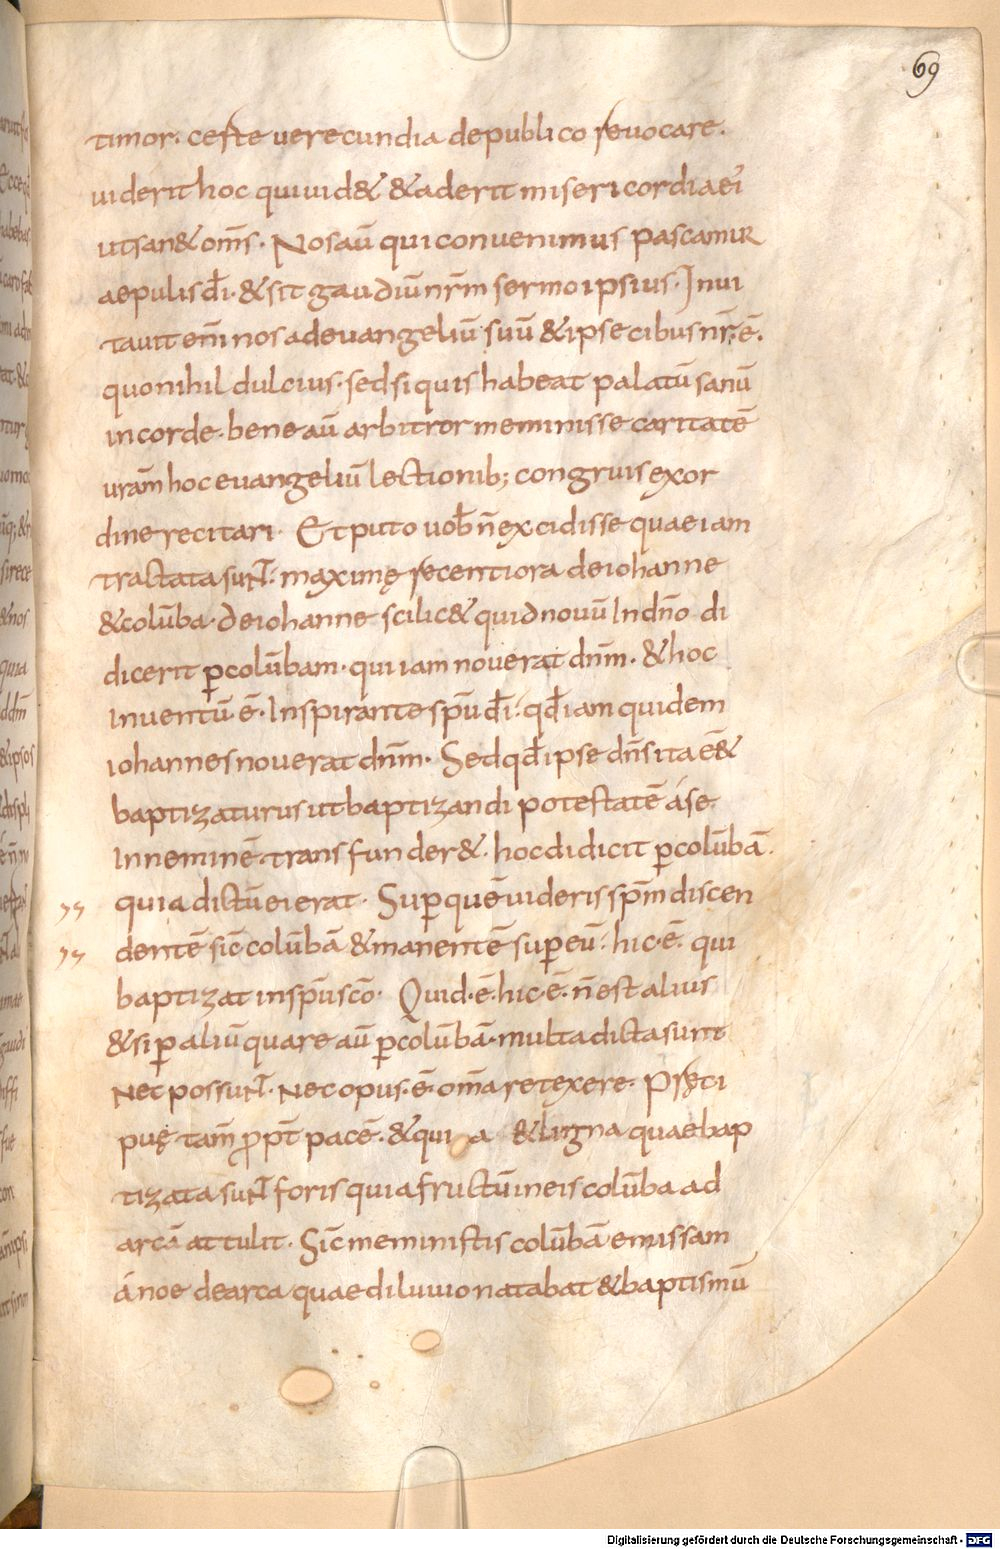 69
timor. cesṡte verecundia depublico revocare.
viderit hoc quiuid& &aderit misericordiaei᾿
utsan& om̅s. Nosau̅ quiconuenimus pascamur
aepulis d̅i. &sit gaudiu̅ nr̅m sermoipsius. Inui
tauit eni̅ nos adeuangeliu̅ suu̅ &ipse cibus nr̅. e̅.
quo nihil dulcius. sedsiquis habeat palatu̅ sanu̅
incorde. bene au̅ arbitror meminisse caritate̅
ura̅m hoc euangeliu̅ lectionib; congruis exor
dine recitari. Et puto uob̅ n̅ excidisse quae iam
tractata sunt. maximę recentiora deiohanne
&colu̅ba. deiohanne scilic& quid nouu̅ In dn̅o di
dicerit p̲colu̅bam. qui iam nouerat dn̅m. &hoc
Inuentu̅. e̅. Inspirante sp̅u d̅i. qd̅ iam quidem
iohannes nouerat dn̅m. Sedqd̅ ipse dn̅s ita e̅&
baptizaturus utbaptizandi potestate̅ áse.
Innemine̅ transfunder&. hoc didicit p̲colu̅ba̅.
quia dictu̅ ei erat. Sup̲que̅ uideris sp̅m discen
dente̅ sic̅ colu̅ba̅ &manente̅ sup̲ eu̅. hic. e̅. qui
baptizat insp̅u sc̅o. Quid. e̅. hic. e̅. n̅ est alius
&si p̲ aliu̅ quare au̅ p̲ colu̅ba̅. multa dicta sunt
Nec possunt. Nec opus. e̅. om̅a retexere. Pręci
puę tam̅ ꝓpt̅ pace̅. &quia &ligna quae bap
tizata sunt foris quia fructu̅ ineis colu̅ba ad
arca̅ attulit. Sic̅ meministis colu̅ba̅ emissam
á noe dearca quae diluuio natabat &baptismu̅
Digitalisierung gefördert durch die Deutsche Forschungsgemeinschaft - DFG